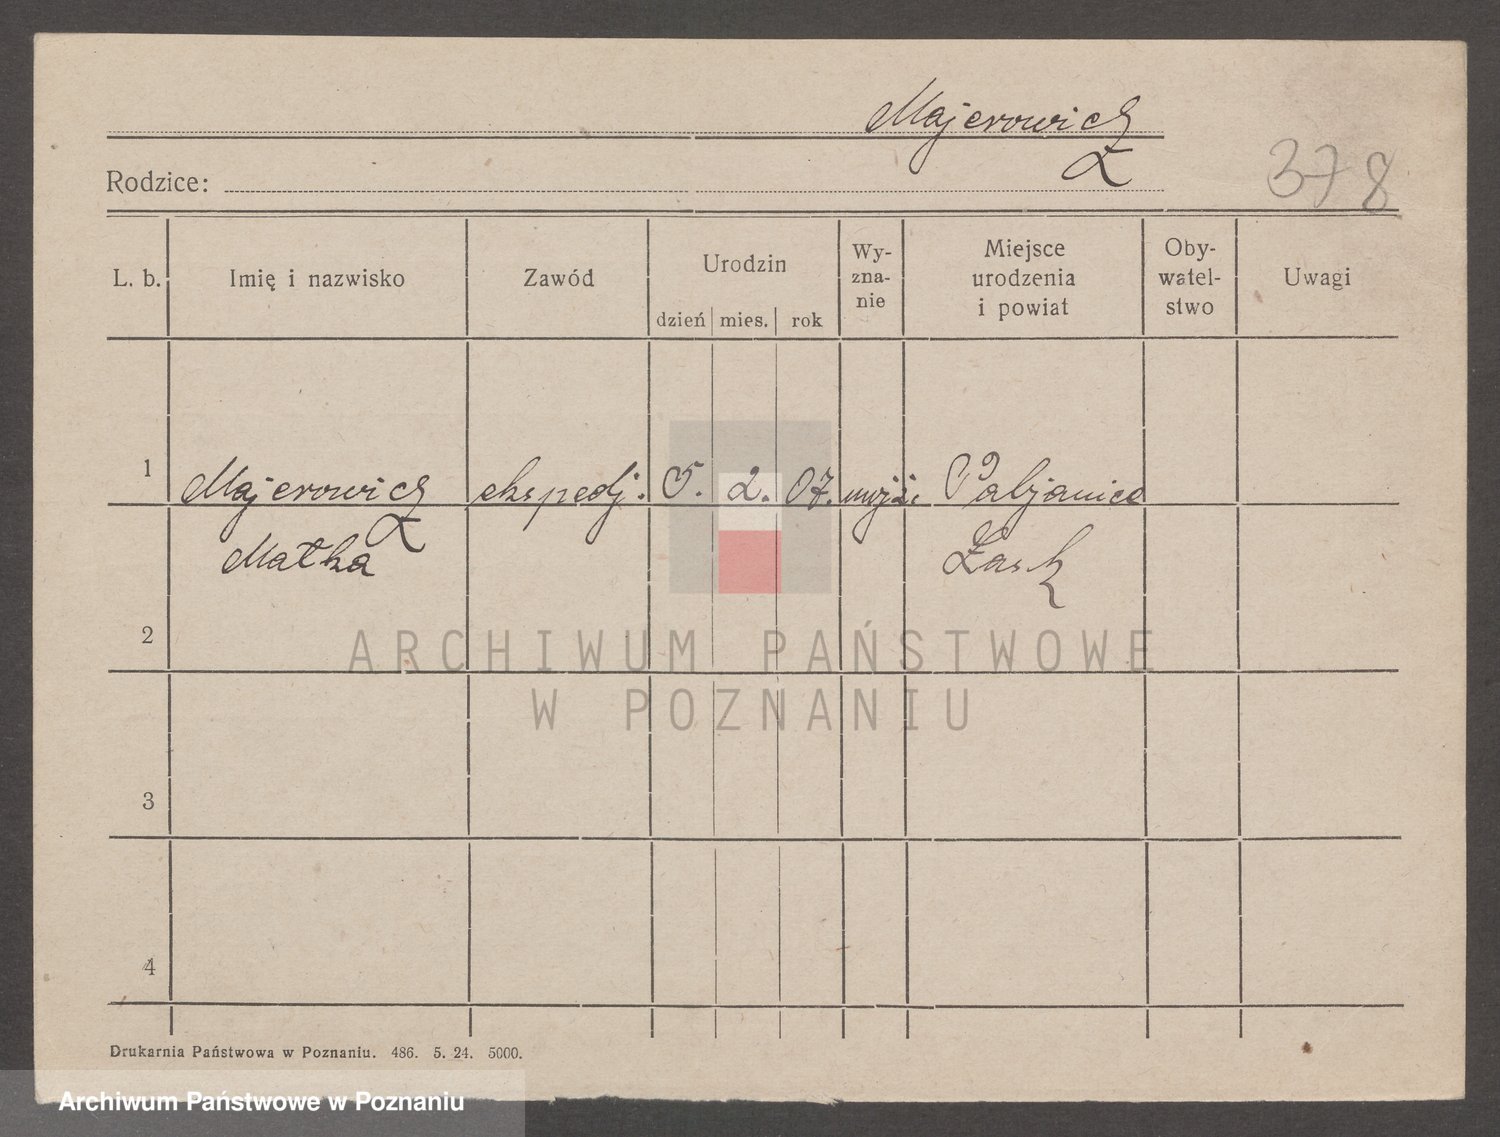 Majerowicz
378
Rodzice:
L. b.
Imię i nazwisko
Zawód
Urodzin
dzień
mies.
rok
Wy-
zna-
nie
Miejsce
urodzenia
i powiat
Oby-
watel-
stwo
Uwagi
1
Majerowicz
Małka
ekspedj.
5.
2.
07.
mojż.
Pabjanice
Łask
2
3
4
ARCHIWUM PAŃSTWOWE
W POZNANIU
Drukarnia Państwowa w Poznaniu. 486. 5. 24. 5000.
Archiwum Państwowe w Poznaniu